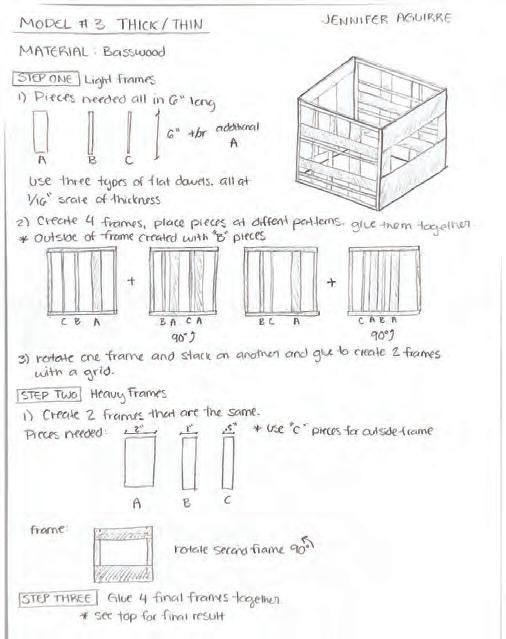 MODEL #3 THICK/THIN
JENNIFER AGUIRRE
MATERIAL: Basswood
STEP ONE Light frames
1) Pieces needed all in 6" long
6" +/or additional A
A B C
use three types of flat dowels. all at
1/16" scale of thickness
2) Create 4 frames, place pieces at diffent patterns. glue them together
* outside of frame created with "B" pieces
+ +
C B A B A C A B C A C A B A
90° 90°
3) rotate one frame and stack on another and glue to create 2 frames
with a grid.
STEP TWO Heavy Frames
1) Create 2 frames that are the same.
Pieces needed: 2" 1" .5" * use "C" pieces for outside frame
A B C
frame:
rotate second frame 90°
STEP THREE Glue 4 final frames together.
* see top for final result